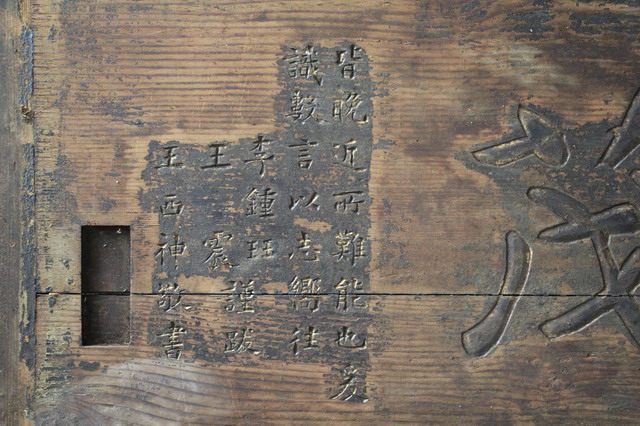 皆晚近所難能也爰
識數言以志嚮往
李鍾珏
王震謹跋
王西神敬書